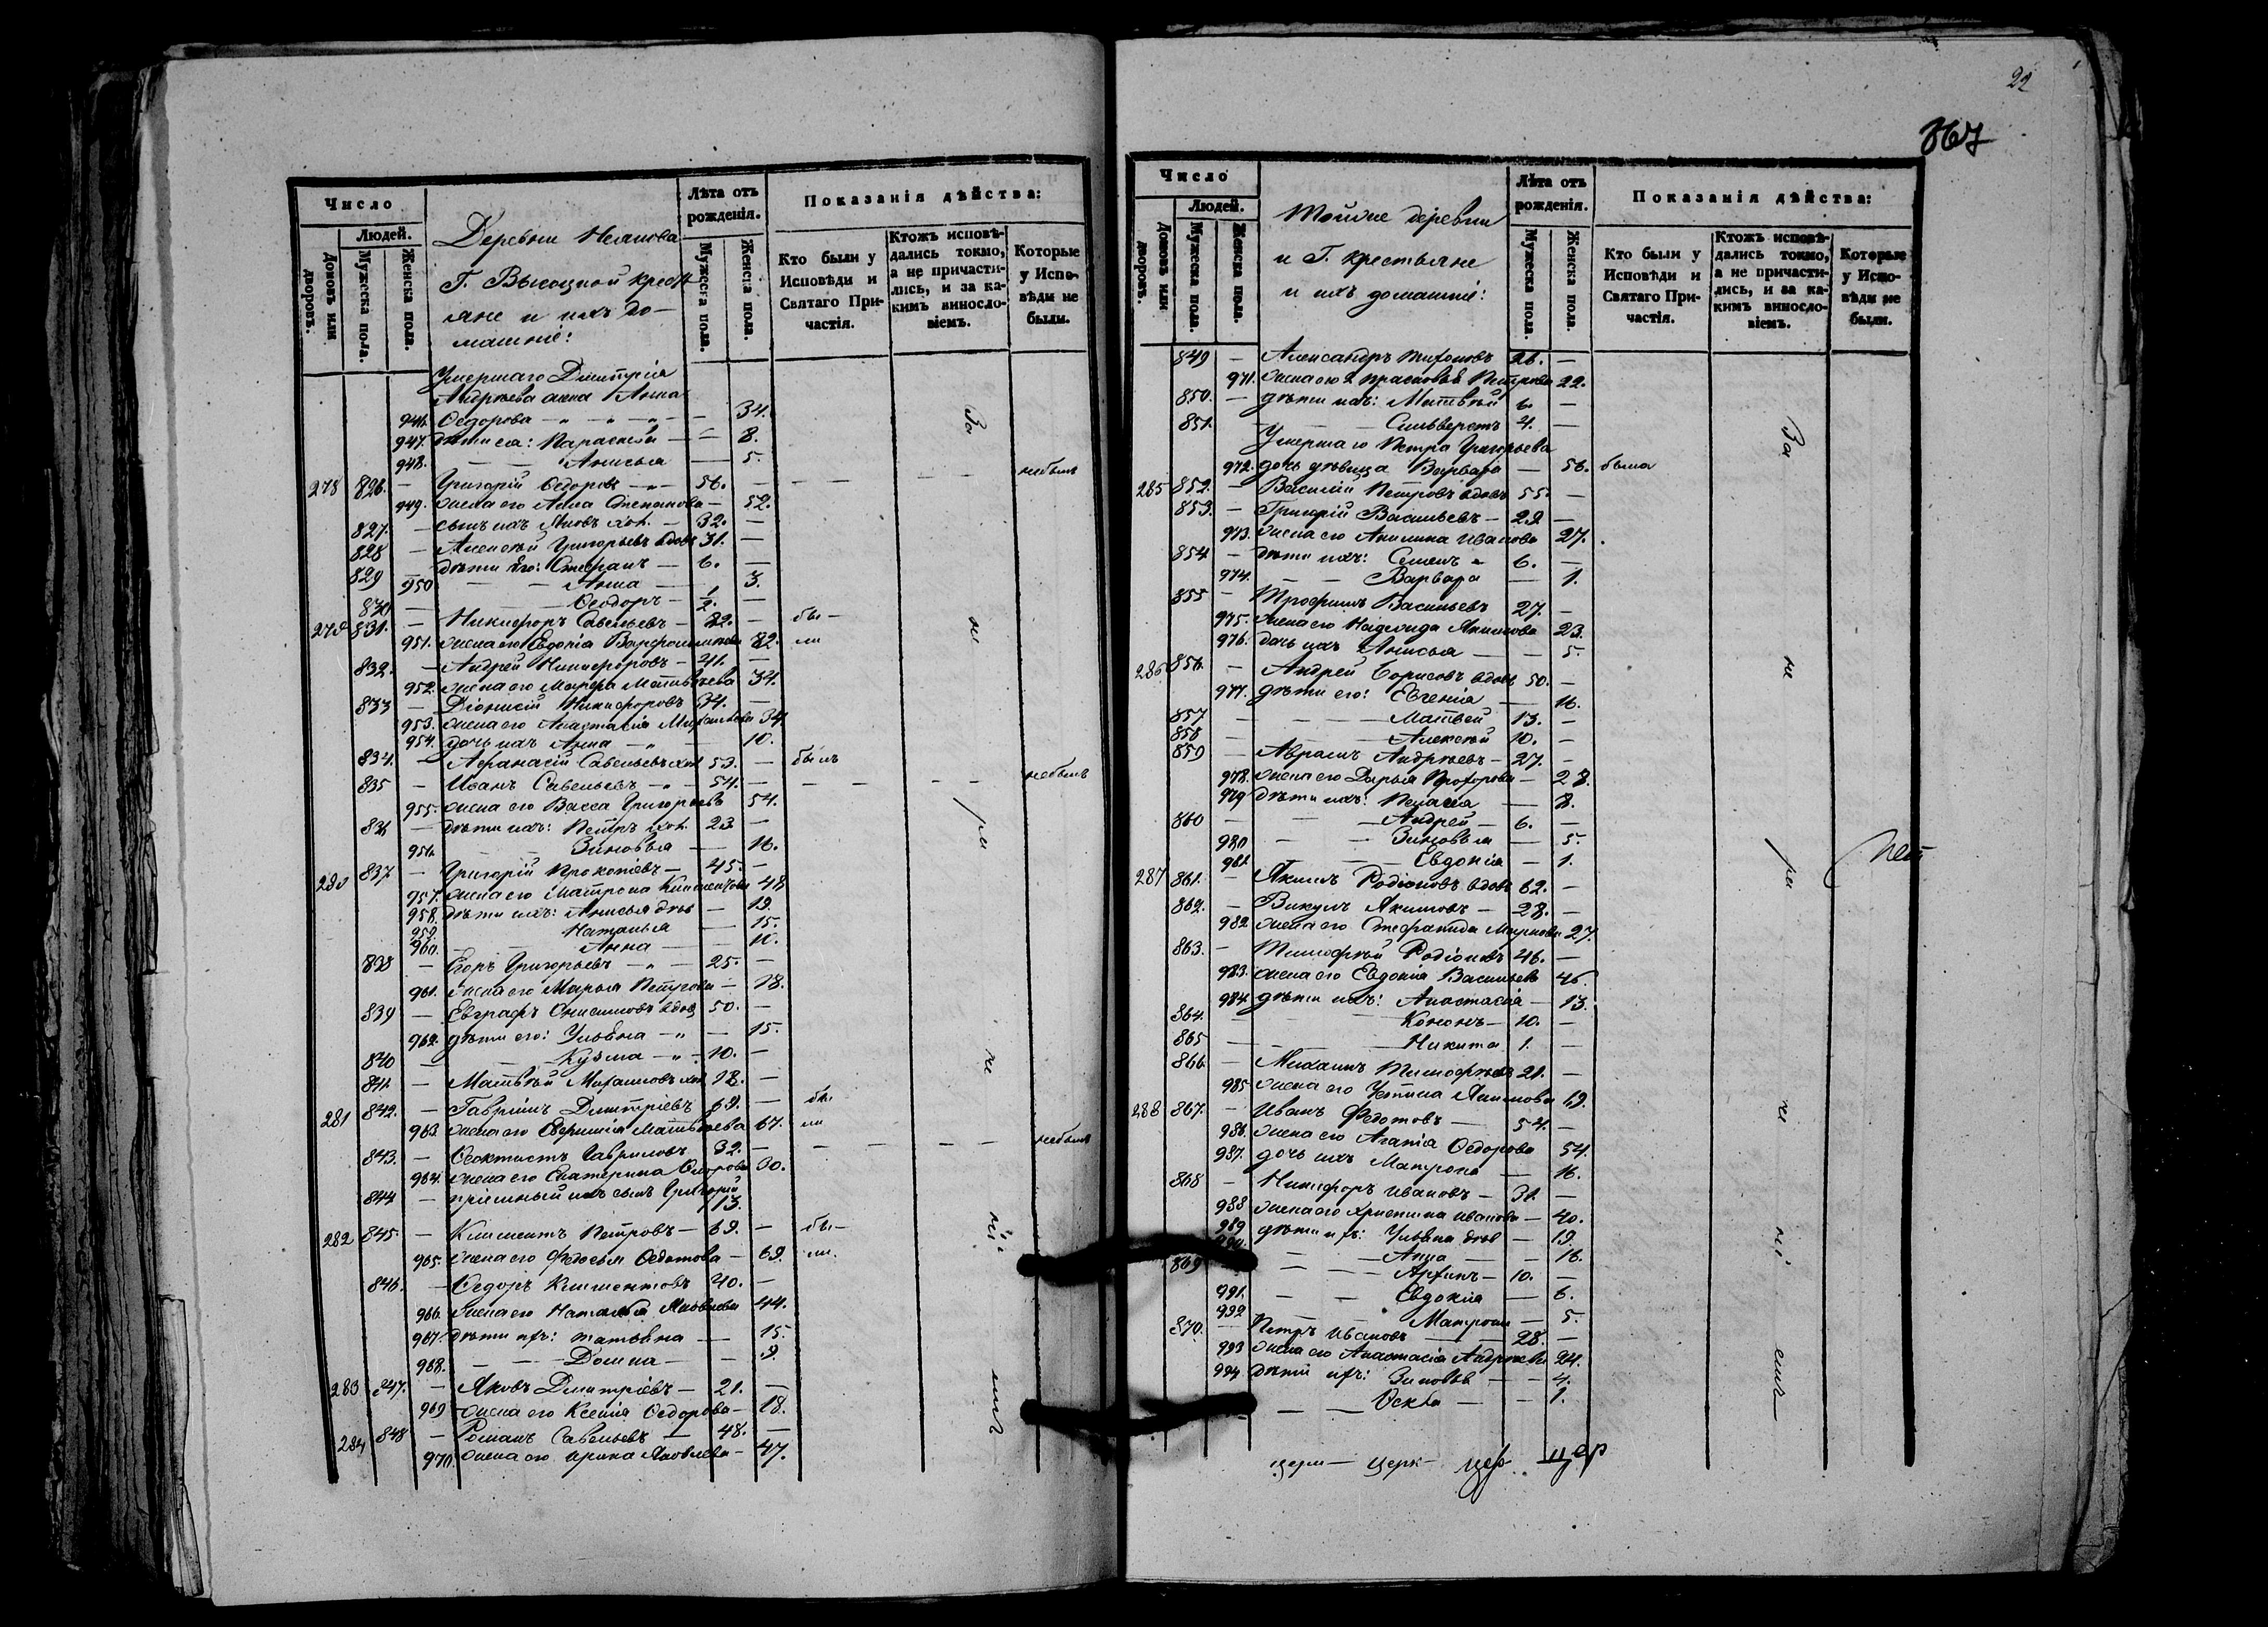 Число
Людей.
Домовъ или дворовъ.
Мужеска пола.
Женска пола.
Деревни
Г. Высоцкой кресть
яне и ихъ до-
машніе:
Лѣта отъ рожденія.
Мужеска пола.
Женска пола.
Показанія дѣйства:
Кто были у Исповѣди и Святаго Причастія.
Ктожъ исповѣдались токмо, а не причастились, и за какимъ винословіемъ.
Которые у Исповѣди не были.
Умершаго Димитрія
Андреева жена Анна
946. Ѳедорова — 34.
947. дѣти ея: Параскева — 8.
948. — Анисья — 5.
278 826. — Григорій Ѳедоровъ — 56. — небылъ
949. жена его Анна Степанова — 52.
827. — сынъ ихъ Яковъ хол. — 32. —
828 — Алексѣй Григорьевъ вдовъ 31. —
829 — дѣти его: Стефанъ — 6. —
950 — Анна — 3.
830 — Ѳеодоръ — 1/2. —
279 831. — Никифоръ Савельевъ — 82. — бы-
951. жена его Евдокія Варфоломеева 82. ли
832. — Андрей Никифоровъ — 41. —
952. жена его Марѳа Матвѣева 34.
833 — Діонисій Никифоровъ 34. —
953. жена его Анастасія Михайлова 34.
954. дочь ихъ Анна — 10.
834. — Аѳанасій Савельевъ хол 53. — былъ
835 — Иванъ Савельевъ — 54. — небылъ
955. жена его Васса Григорьева 54.
836 — дѣти ихъ: Петръ хол. 23 —
956. — Зиновья — 16.
280 837 — Григорій Прокопіевъ — 45. —
957. жена его Матрона Климентова 48
958. дѣти ихъ: Анисья дѣв — 19.
959. Наталья — 15.
960. — Анна — 10.
838 — Егоръ Григорьевъ — 25. —
961. жена его Марья Петрова — 18.
839 — Евграфъ Онисимовъ вдов 50. —
962. дѣти его: Ульяна — 15.
840 — Кузма — 10. —
841 — Матвѣй Михаиловъ хол 18. —
281 842. — Гавріилъ Димитріевъ 69. — бы
963 жена его Евфимія Матвѣева 67. ли
843. — Ѳеоктистъ Гавриловъ 32. — небылъ
964. жена его Екатерина Ѳедорова 30.
844 — пріемный ихъ сынъ Григорій 13.
282 845. — Климентъ Петровъ — 69. — бы-
965. жена его Федосья Ѳедотова — 69. ли.
846. — Ѳедоръ Климентовъ 40. —
966. жена его Наталья Яковлева 44.
967. дѣти ихъ: Татьяна — 15.
968. — Домна — 9.
283 847. — Яковъ Димитріевъ — 21. —
969 жена его Ксенія Ѳедорова — 18.
284 848 — Романъ Савельевъ — 48. —
970. жена его Ирина Яковлева — 47.
За не ри не ні емъ
22
367
Число
Людей.
Домовъ или дворовъ.
Мужеска пола.
Женска пола.
Тойже деревни
и Г. крестьяне
и ихъ домашніе:
Лѣта отъ рожденія.
Мужеска пола.
Женска пола.
Показанія дѣйства:
Кто были у Исповѣди и Святаго Причастія.
Ктожъ исповѣдались токмо, а не причастились, и за какимъ винословіемъ.
Которые у Исповѣди не были.
849 — Александръ Тихоновъ 26. —
971. жена его 2 Прасковья Петрова 22.
850. — дѣти ихъ: Матвѣй 6. —
851. — Сильверстъ 4. —
Умершаго Петра Григорьева
972. дочь дѣвица Варвара — 56. была
285 852. — Василій Петровъ вдовъ 55. —
853. — Григорій Васильевъ — 29 —
973. жена его Акилина Иванова 27.
854 — дѣти ихъ: Семенъ — 6. —
974. — Варвара — 1.
855 — Трофимъ Васильевъ 27. —
975. жена его Надежда Акимова 23.
976. дочь ихъ Анисья — 5.
286 856. — Андрей Борисовъ вдовъ 50. —
977. дѣти его: Евгенія — 16.
857 — Матвей 13. —
858 — Алексѣй 10. —
859 — Авраамъ Андреевъ — 27. —
978. жена его Дарья Прохорова — 28.
979 дѣти ихъ: Пелагія — 8.
860 — Андрей — 6. —
980 — Зиновья — 5.
981 — Евдокія — 1.
287 861. — Якимъ Родіоновъ вдовъ 62. —
862. — Викулъ Якимовъ — 28. —
982 жена его Стефанида Маркова 27.
863. — Тимофѣй Родіоновъ 46. —
983. жена его Евдокія Васильева 46.
984 дѣти ихъ: Анастасія — 13.
864. — Кононъ — 10. —
865 — Никита 1. —
866 — Михаилъ Тимофѣевъ 21. —
985 жена его Устина Акимова 19.
288 867. — Иванъ Федотовъ — 54. —
986. жена его Агапія Ѳедорова 54.
987. дочь ихъ Матрона — 16.
868 — Никифоръ Ивановъ — 31. —
988 жена его Христина Иванова — 40.
989 дѣти ихъ: Ульяна дѣв — 19.
990. — Анна — 16.
869 — Архипъ — 10. —
991. — Евдокія — 6.
992 — Матрона — 5.
870. — Петръ Ивановъ — 28. —
993 жена его Анастасія Андреева 24.
994 дѣти ихъ: Зиновья — 4.
— Ѳекла — 1.
За не ри не ні емъ
церк — церк — цер цер